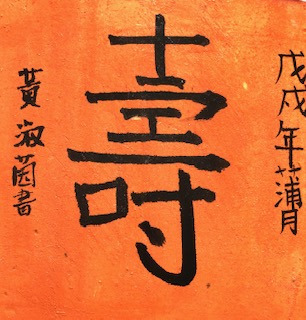 戊戌年蒲月
壽
黃淑茵書